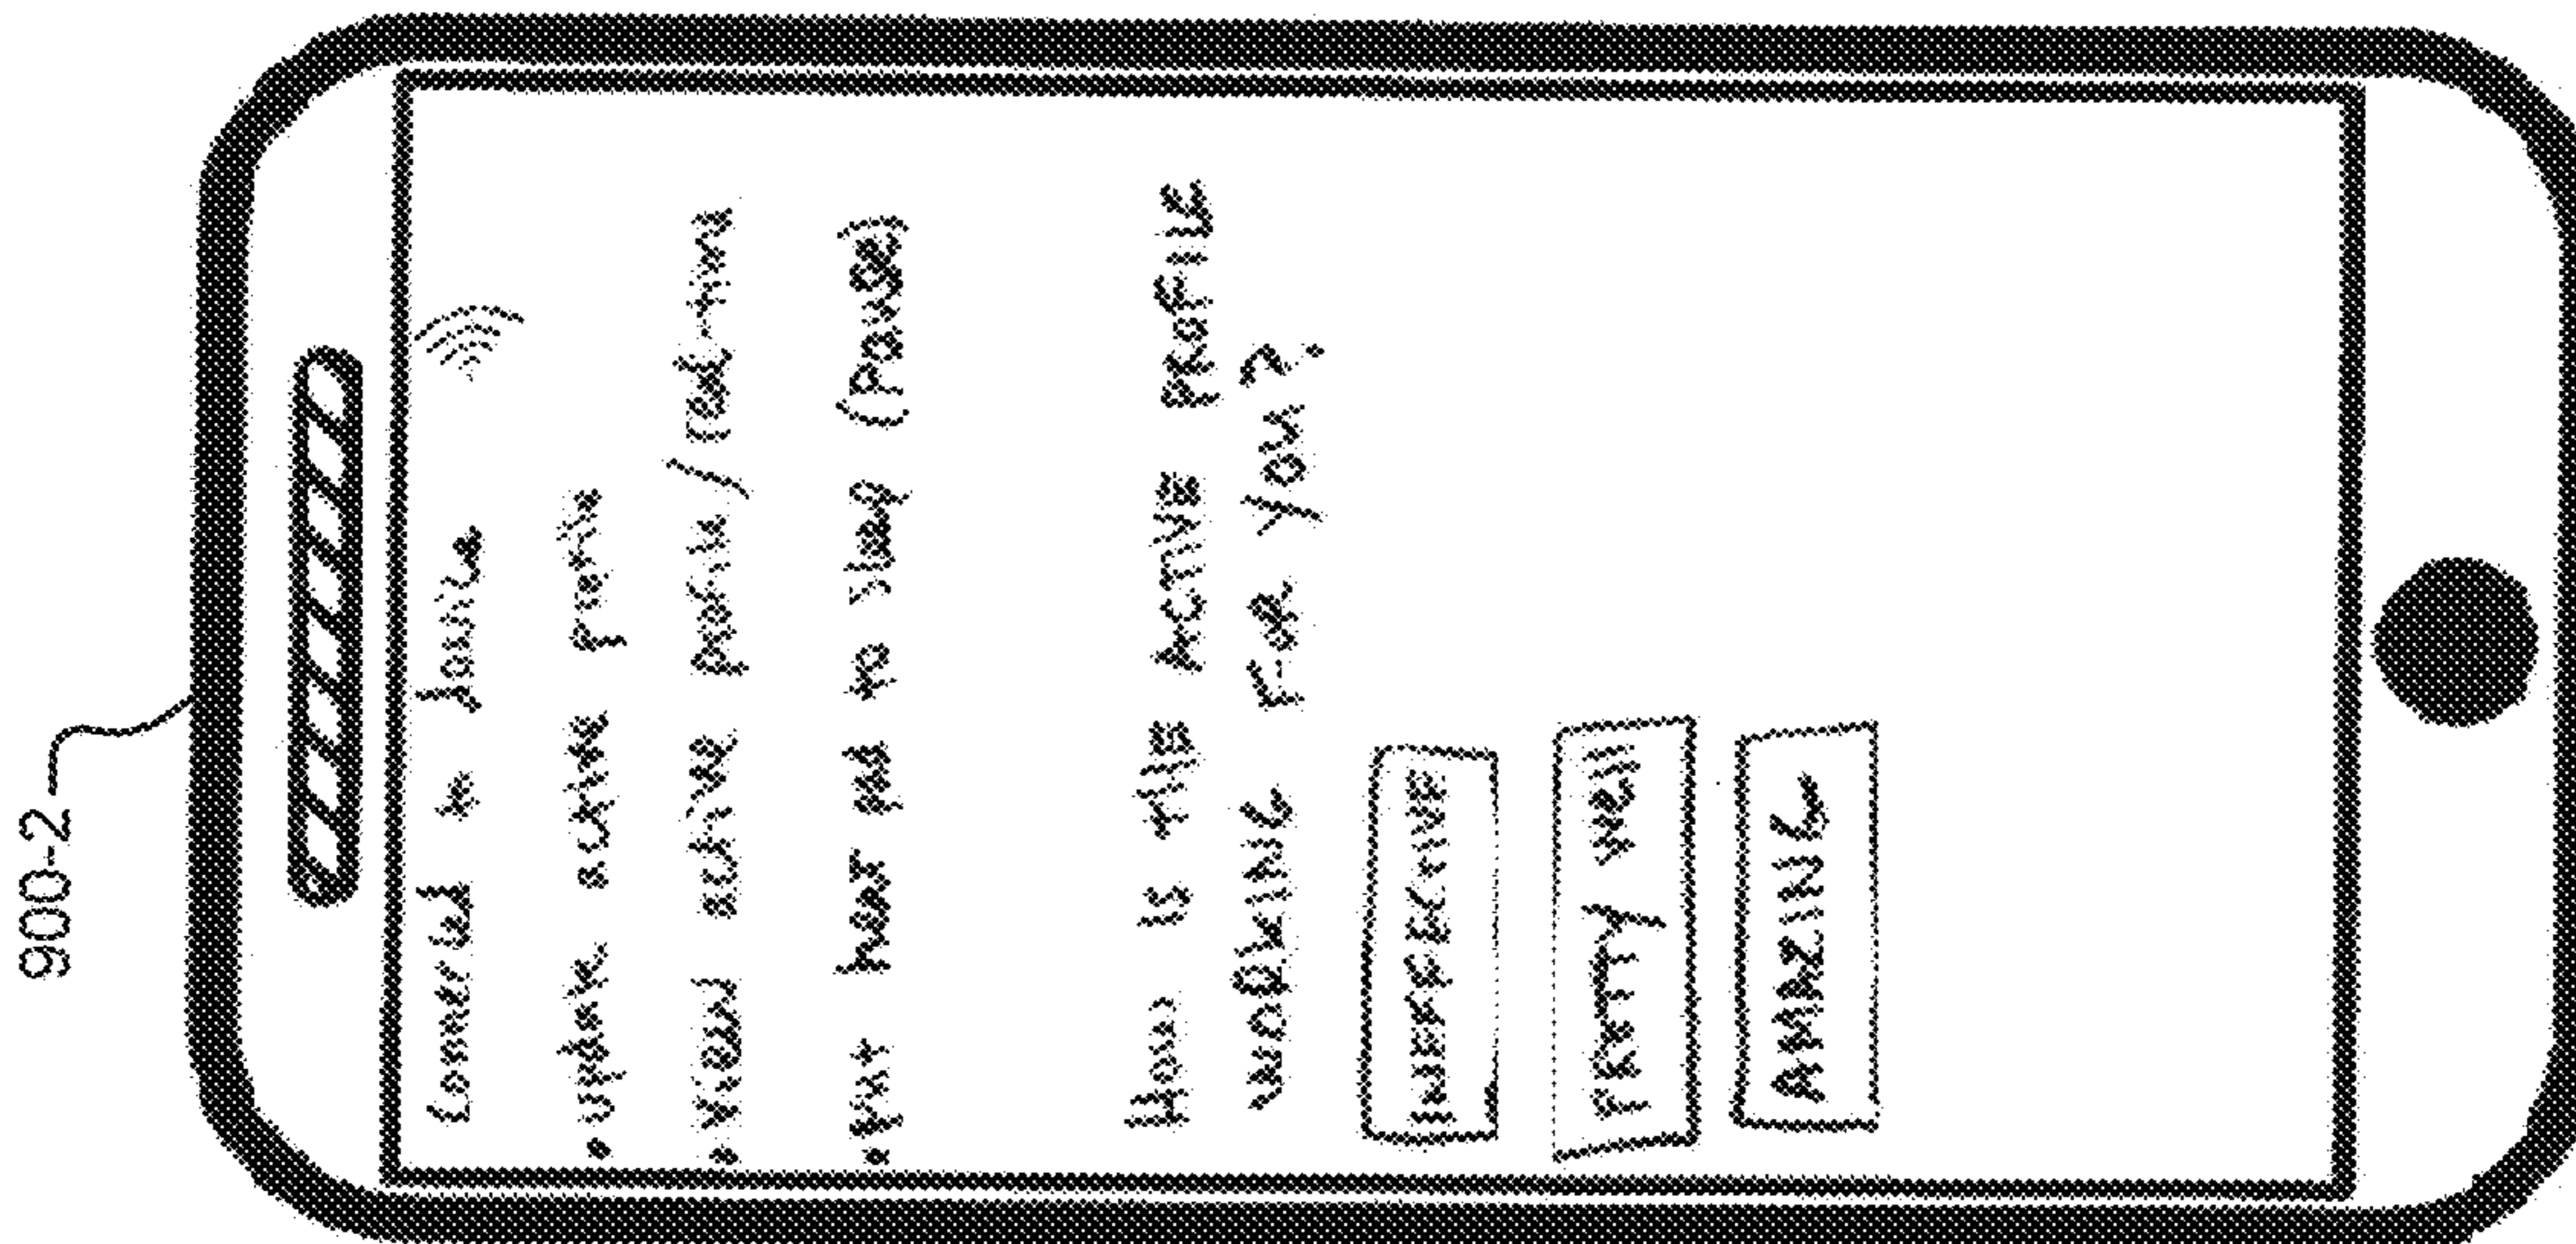 900-2
Connected to
• update active profile
• View active profile / real-time
• Put heat pad to sleep (Pause)
How is this ACTIVE PROFILE
WORKING FOR YOU?
INEFFECTIVE
PRETTY Well
AMAZING